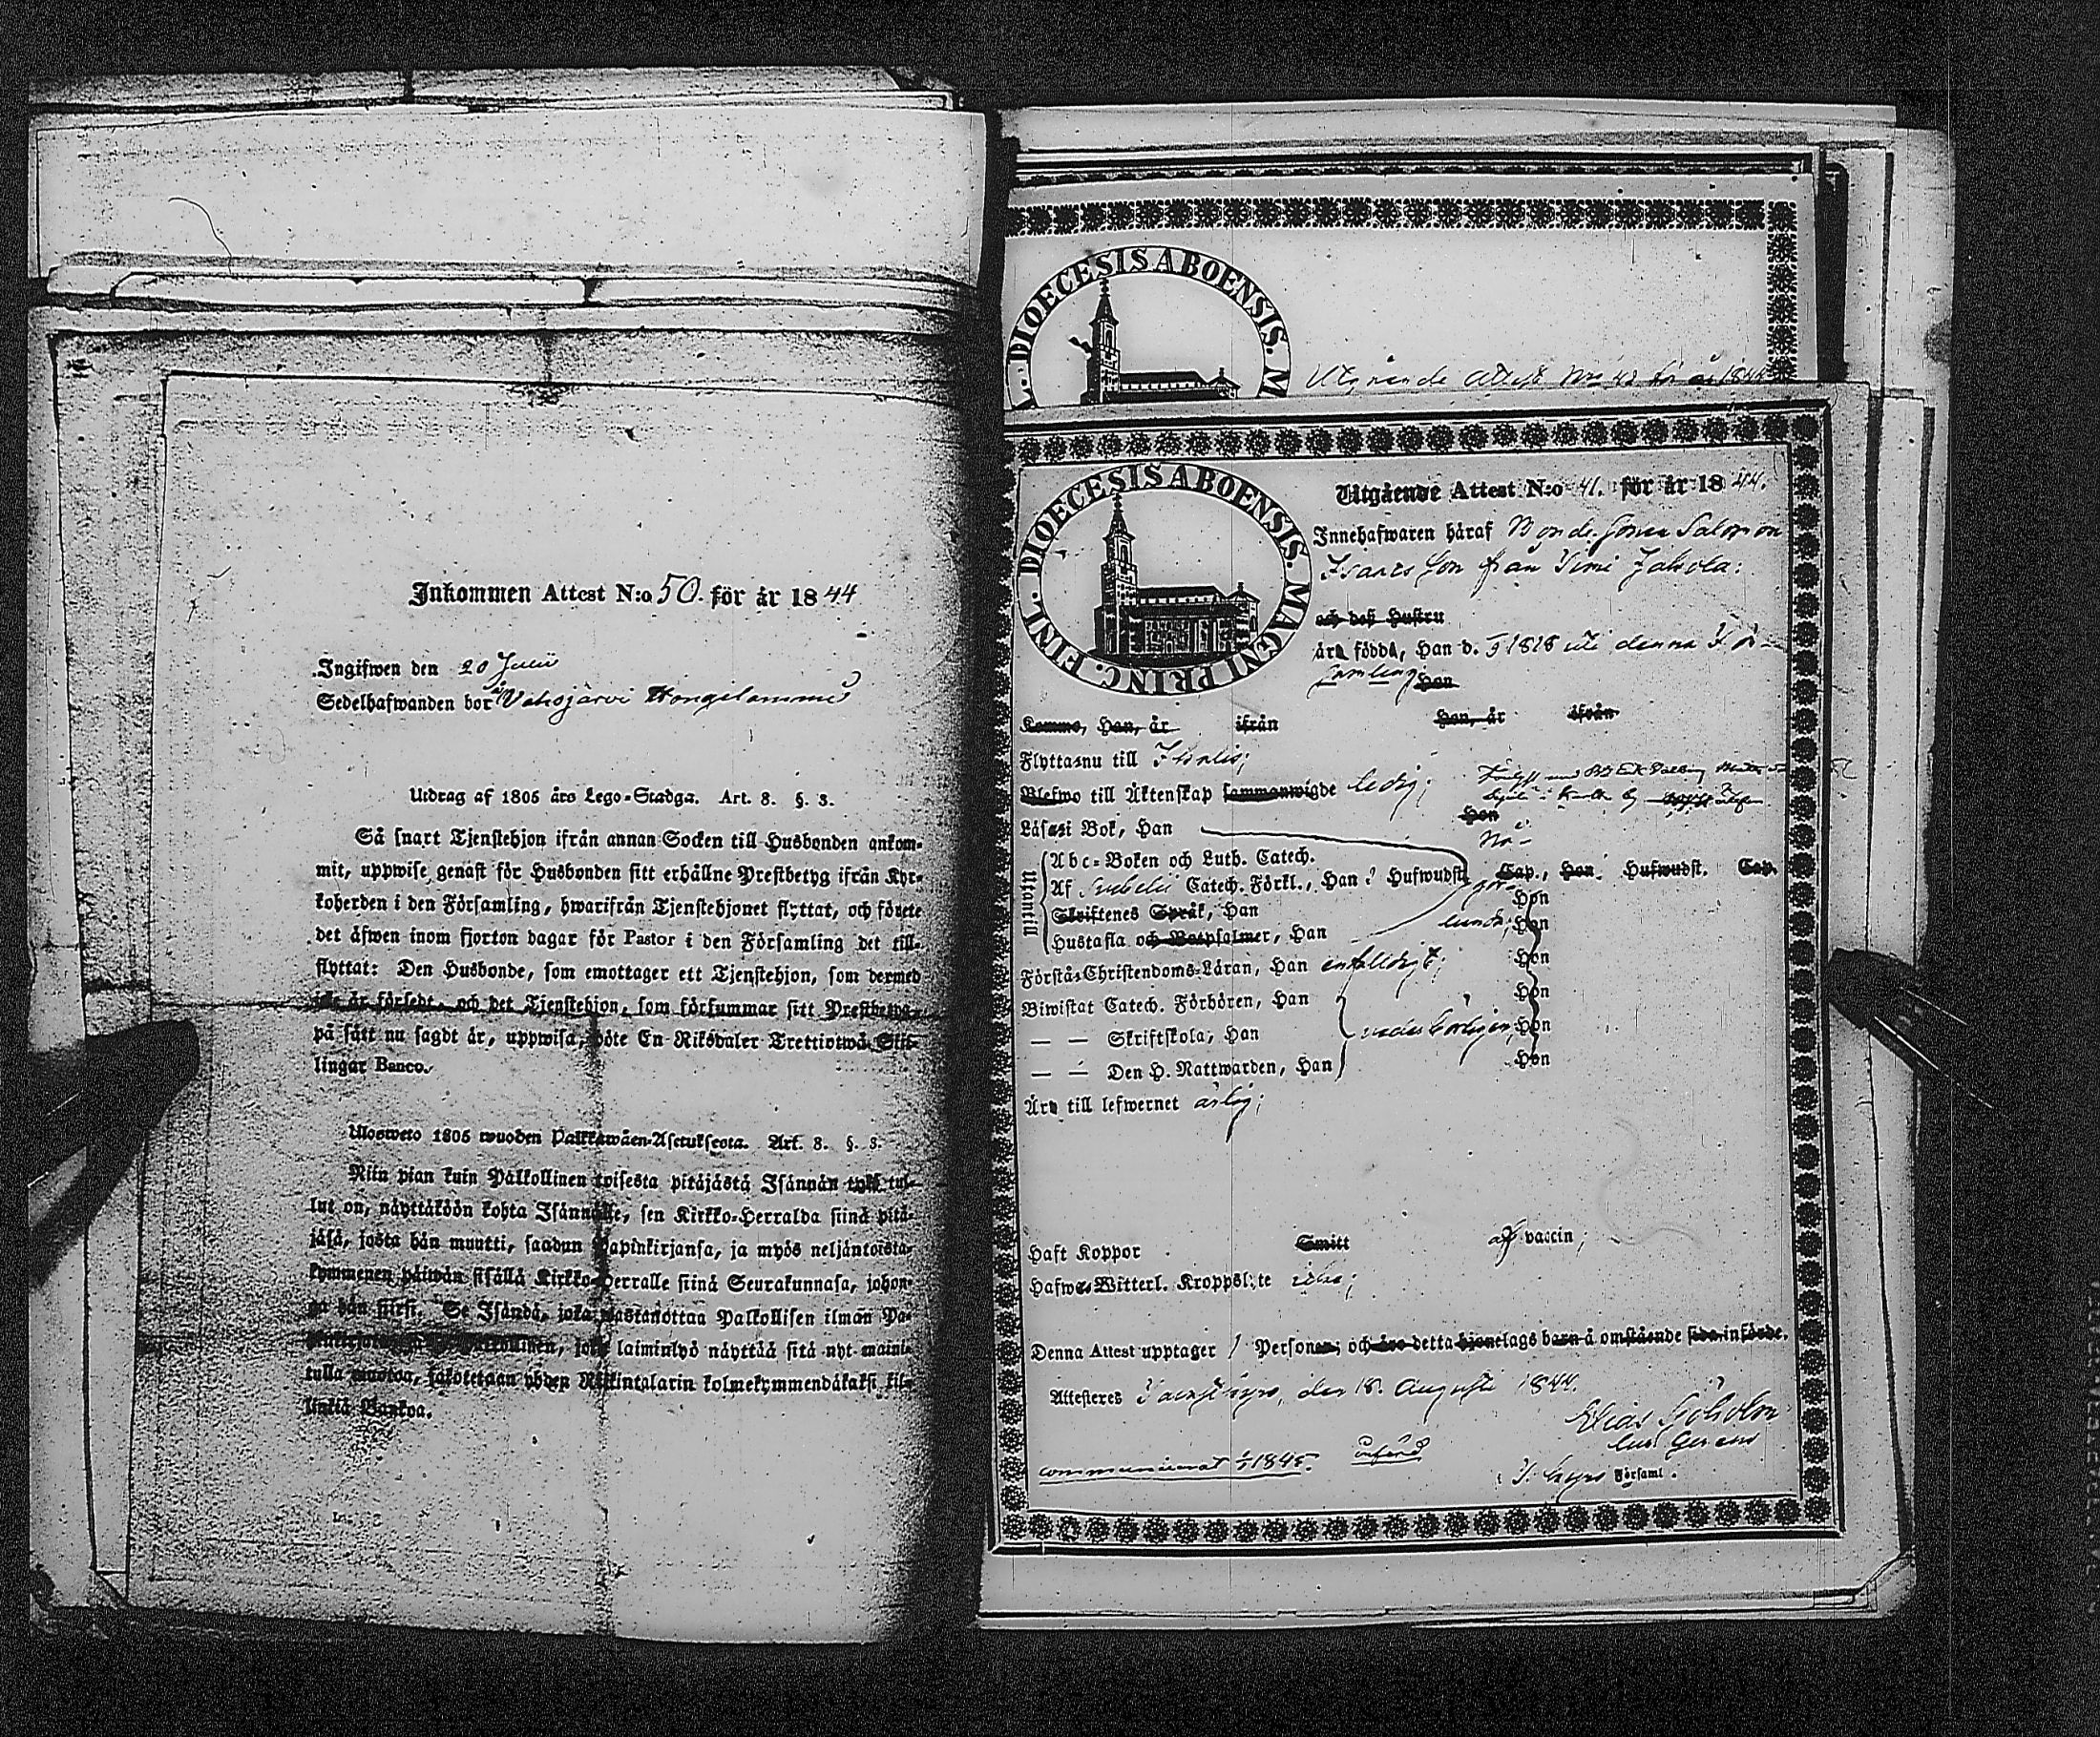 Inkommen Attest N:o 50. för år 1844
Ingifwen den 20 Julii
Sedelhafwanden bor i Vahojärvi
Utdrag af 1805 års Lego-Stadga. Art. 8. §. 3.
Så snart Tjenstehjon ifrån annan Socken till Husbonden ankom-
mit, uppwise genast för Husbonden sitt erhållne Prestbetyg ifrån Kyr-
koherden i den Församling, hwarifrån Tjenstehjonet flyttat, och förete
det äfwen inom fjorton dagar för Pastor i den Församling det till-
flyttat: Den Husbonde, som emottager ett Tjenstehjon, som dermed
icke är försedt, och det Tjenstehjon, som försummar sitt Prestbetyg,
på sätt nu sagdt är, uppwisa, böte En Riksdaler Trettiotwå Skil-
lingar Banco.
Ulosweto 1805 wuoden Palkkawäen-Asetuksesta. Art. 8. §. 3.
Niin pian kuin Palkollinen toisesta pitäjästä Isännän tykö tul-
lut on, näyttäköön kohta Isännälle, sen Kirkko-Herralda siinä pitä-
jäsä, josta hän muutti, saadun Papinkirjansa, ja myös neljäntoista-
kymmenen päiwän sisällä Kirkko-Herralle siinä Seurakunnasa, johon-
ga hän siirsi. Se Isändä, joka wastanottaa Palkollisen ilman Pa-
pinkirjata, ja se Palkollinen, joka laiminlyö näyttää sitä nyt maini-
tulla muotoa, sakotetaan yhden Riikintalarin kolmekymmendäkaksi kil-
linkiä Bankoa.
DIOECESIS ABOENSIS. M
Utgående Attest N:o 42 för år 1844
FINL. DIOECESIS ABOENSIS. MAGNI PRINC.
Utgående Attest N:o 41. för år 1844.
Innehafwaren häraf Bondesonen Salomon
Isaacs Son från Timi Jakola:
och deß Hustru
är född, Han d. 5/ 1818 uti denna För-
samling Hon
Komne, Han, år ifrån Hon, år ifrån
Flyttas nu till Ikalis;
Blefwo till Äktenskap sammanwigde ledig;
Läsa i Bok, Han Hon
Nö-
Utantill
Abc-Boken och Luth. Catech.
Af Svebelii Catech. Förkl., Han Hufwudst. Cap., Hon Hufwudst. Cap.
Skriftenes Språk, Han Hon
Hustafla och Botpsalmer, Han Hon
Förstå Christendoms-Läran, Han enfaldigt; Hon
Biwistat Catech. Förhören, Han Hon
— — Skriftskola, Han vederbörligen; Hon
— — Den H. Nattwarden, Han Hon
Är till lefwernet ärlig;
Haft Koppor Smitt af vaccin;
Hafwa Witterl. Kroppslyte icke;
Denna Attest upptager 1 Personer; och äro detta hjonelags barn å omstående sida införde.
Attesteres Tavastkyro, den 18. Augusti 1844.
Elias
i T. kyro Församl.
communicerat 1845. införd